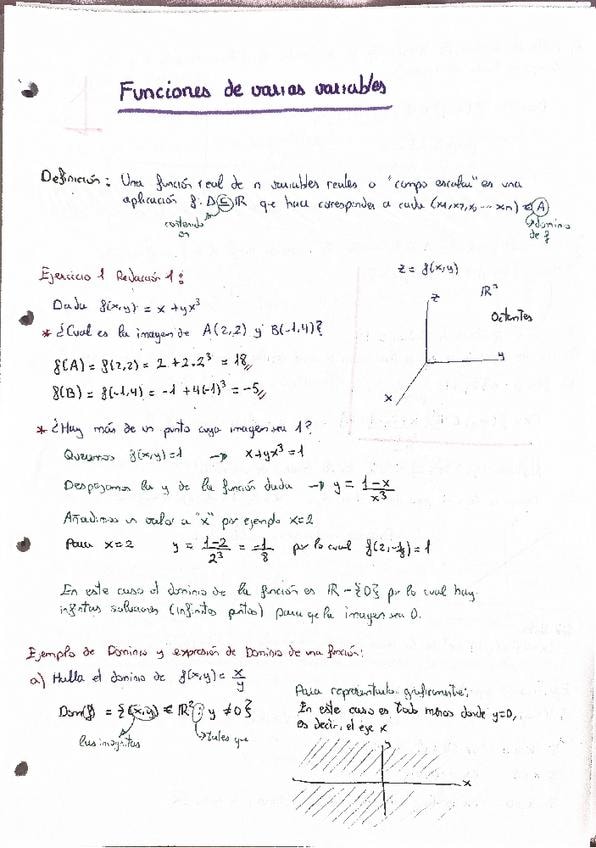 Funciones de varias variables
Definición: Una función real de n variables reales o "campo escalar" es una
aplicación f: D ⊆ ℝ que hace corresponder a cada (x1, x2, x3 ... xn) ∈ A
contenido en
dominio de f
Ejercicio 1 Relación 1:
Dada f(x,y) = x + yx³
* ¿Cual es la imagen de A(2,2) y B(-1,4)?
f(A) = f(2,2) = 2 + 2·2³ = 18
f(B) = f(-1,4) = -1 + 4(-1)³ = -5
z = f(x,y)
ℝ³
Octantes
z
y
x
* ¿Hay más de un punto cuya imagen sea 1?
Queremos f(x,y)=1 → x+yx³=1
Despejamos la y de la función dada → y = (1-x)/x³
Añadimos un valor a "x" por ejemplo x=2
Para x=2 y = (1-2)/2³ = -1/8 por lo cual f(2,-1/8) = 1
En este caso el dominio de la función es ℝ-{0} por lo cual hay
infinitas soluciones (infinitos puntos) para qe la imagen sea 0.
Ejemplo de Dominio y expresión de Dominio de una función:
a) Halla el dominio de f(x,y) = x/y
Dom(f) = {(x,y) ∈ ℝ² : y ≠ 0}
las incógnitas
tales que
Para representarlo graficamente:
En este caso es todo menos donde y=0,
es decir, el eje x
y
x